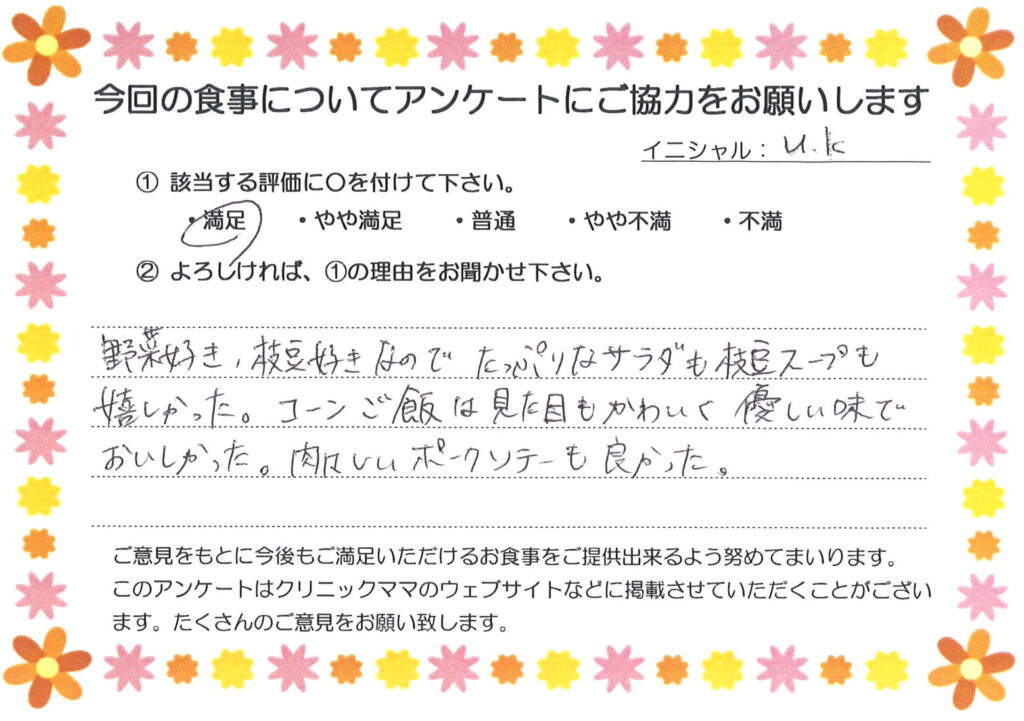 今回の食事についてアンケートにご協力をお願いします
イニシャル： u.k
① 該当する評価に〇を付けて下さい。
・満足 ・やや満足 ・普通 ・やや不満 ・不満
② よろしければ、①の理由をお聞かせ下さい。
野菜好き、枝豆好きなので たっぷりなサラダも枝豆スープも
嬉しかった。コーンご飯は見た目もかわいく 優しい味で
おいしかった。肉々しいポークソテーも良かった。
ご意見をもとに今後もご満足いただけるお食事をご提供出来るよう努めてまいります。
このアンケートはクリニックママのウェブサイトなどに掲載させていただくことがござい
ます。たくさんのご意見をお願い致します。